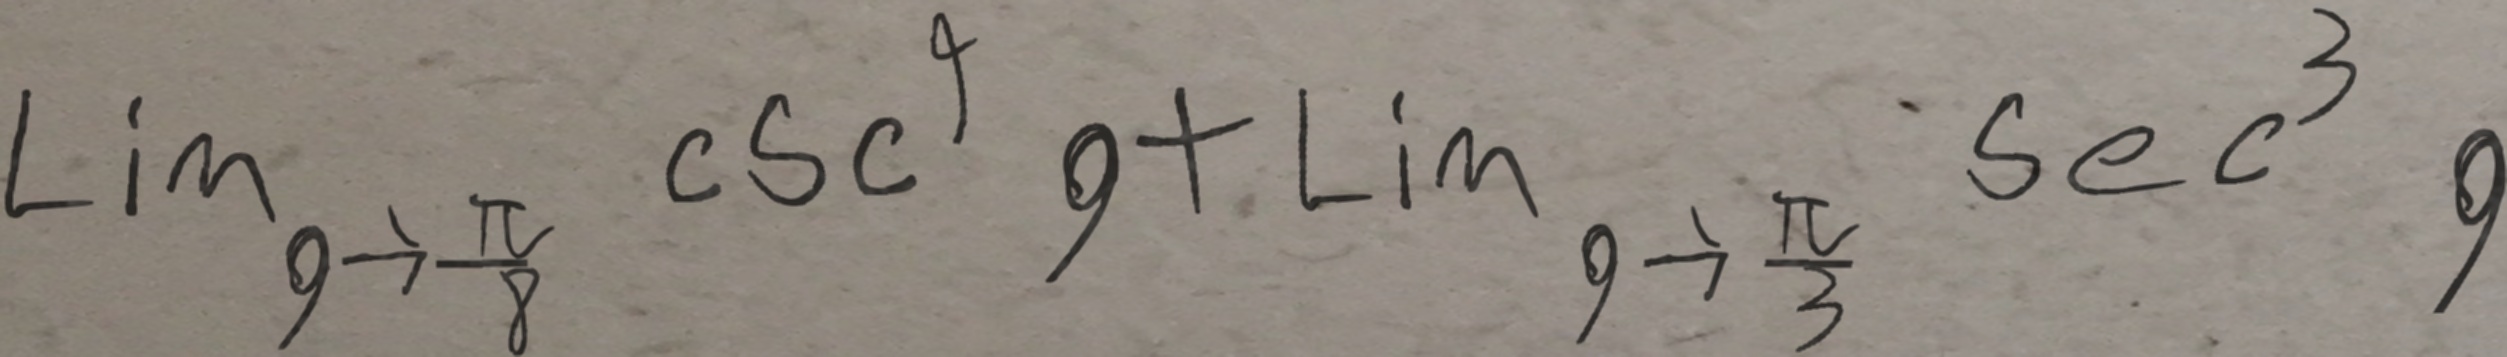 Lim_{g→\frac{π}{8}} csc^4 g + Lim_{g→\frac{π}{3}} sec^3 g